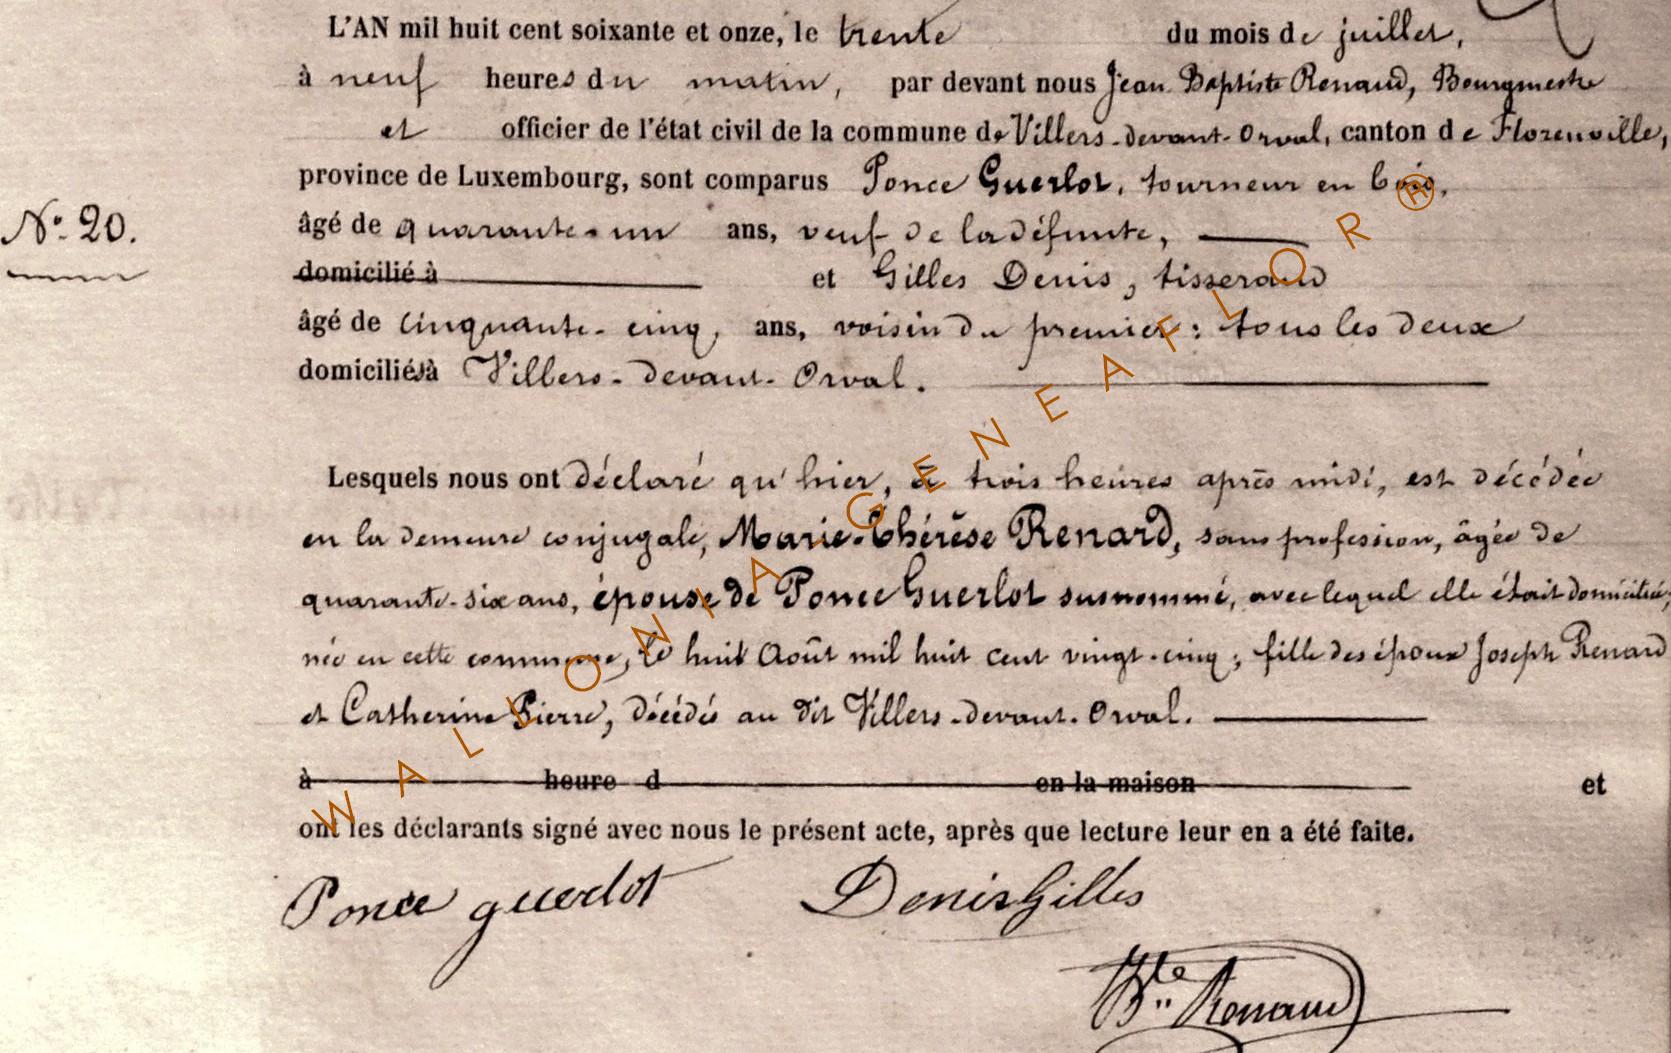 L'AN mil huit cent soixante et onze, le trente du mois de juillet,
à neuf heures du matin, par devant nous Jean Baptiste Renaud, Bourgmestre
et officier de l'état civil de la commune de Villers-devant-Orval, canton de Florenville,
province de Luxembourg, sont comparus Ponce Guerlot, tourneur en bois,
N° 20.
âgé de quarante-un ans, veuf de la défunte,
domicilié à et Gilles Denis, tisserand
âgé de cinquante-cinq, ans, voisin du premier : tous les deux
domiciliés à Villers-devant-Orval.
Lesquels nous ont déclaré qu'hier, à trois heures après midi, est décédée
en la demeure conjugale, Marie-Thérèse Renard, sans profession, âgée de
quarante-six ans, épouse de Ponce Guerlot susnommé, avec lequel elle était domiciliée,
née en cette commune, le huit Août mil huit cent vingt-cinq ; fille des époux Joseph Renard
et Catherine Pierre, décédés au dit Villers-devant-Orval.
à heure d en la maison et
ont les déclarants signé avec nous le présent acte, après que lecture leur en a été faite.
Ponce guerlot Denis Gilles
Bte Renaud
WALLONIA GENEAFLOR®